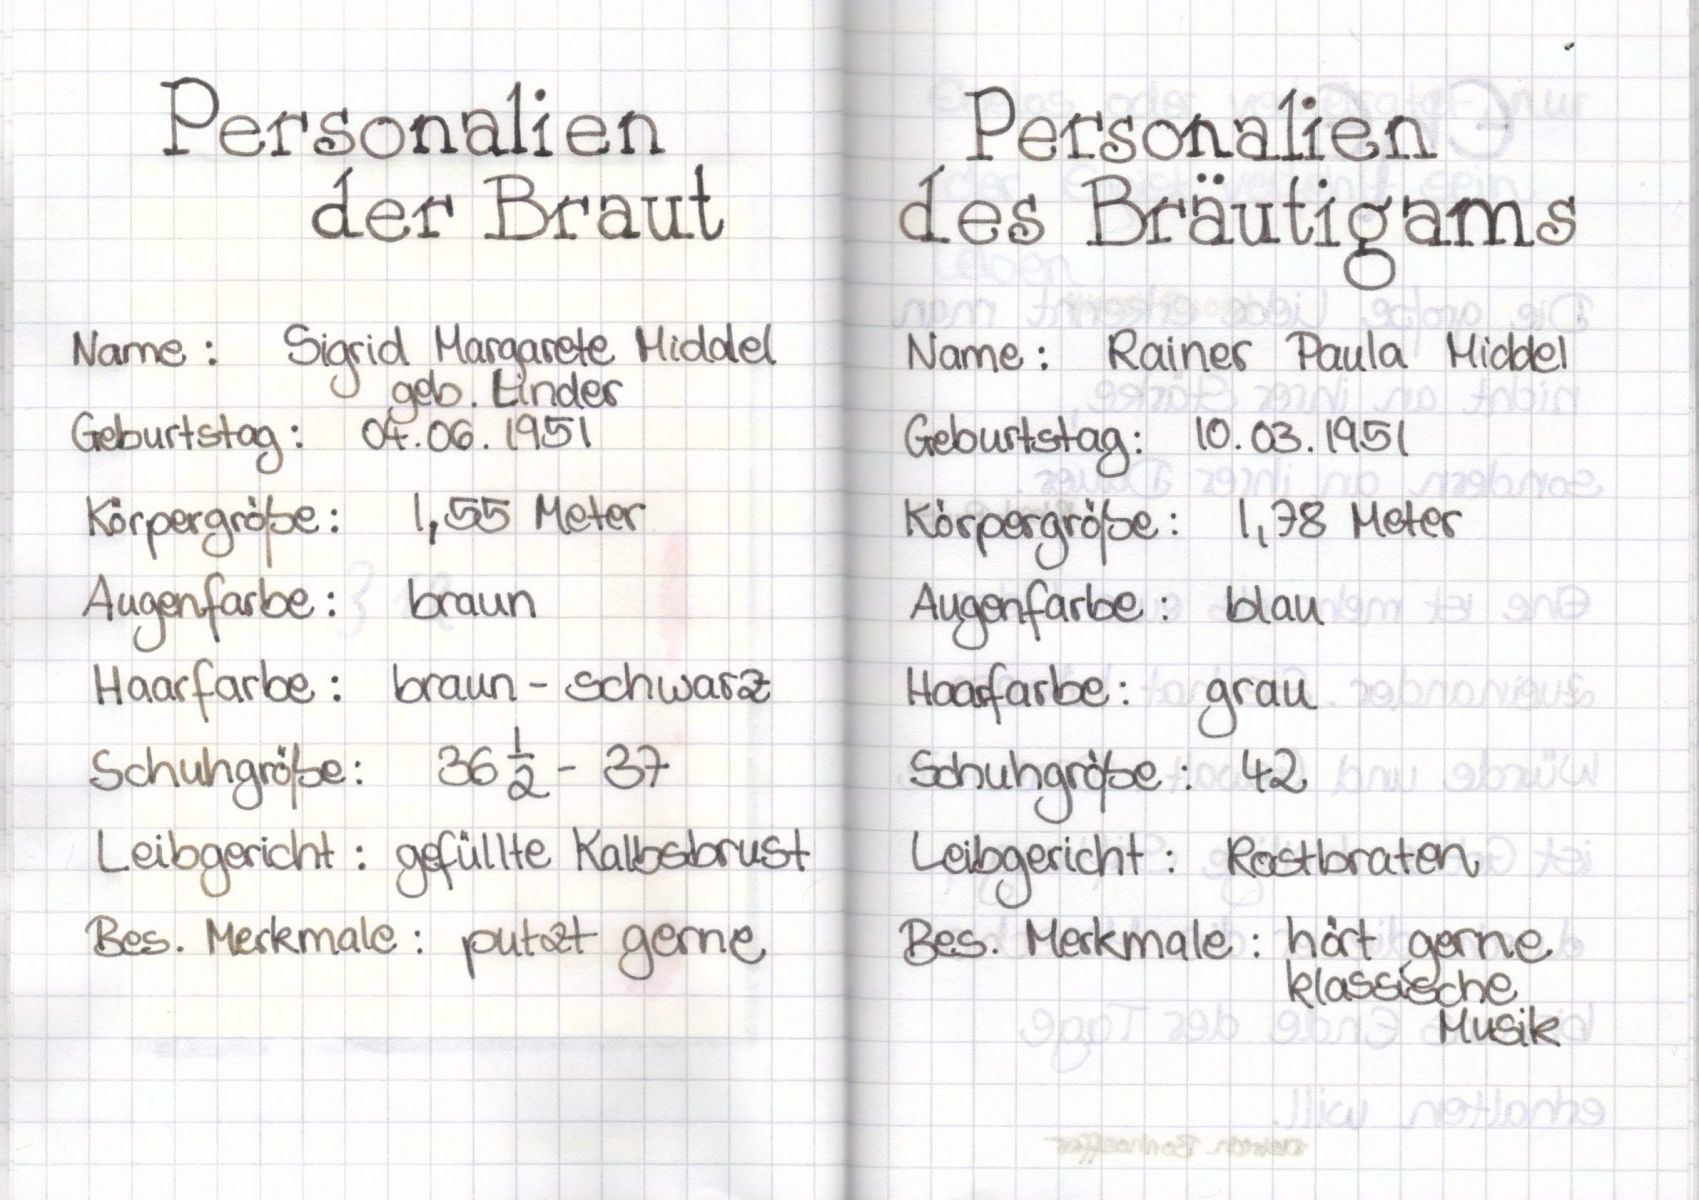 Personalien
der Braut
Name: Sigrid Margarete Middel
geb. Linder
Geburtstag: 04.06.1951
Körpergröße: 1,55 Meter
Augenfarbe: braun
Haarfarbe: braun - schwarz
Schuhgröße: 36 1/2 - 37
Leibgericht: gefüllte Kalbsbrust
Bes. Merkmale: putzt gerne
Personalien
des Bräutigams
Name: Rainer Paula Middel
Geburtstag: 10.03.1951
Körpergröße: 1,78 Meter
Augenfarbe: blau
Haarfarbe: grau
Schuhgröße: 42
Leibgericht: Rostbraten
Bes. Merkmale: hört gerne
klassische
Musik